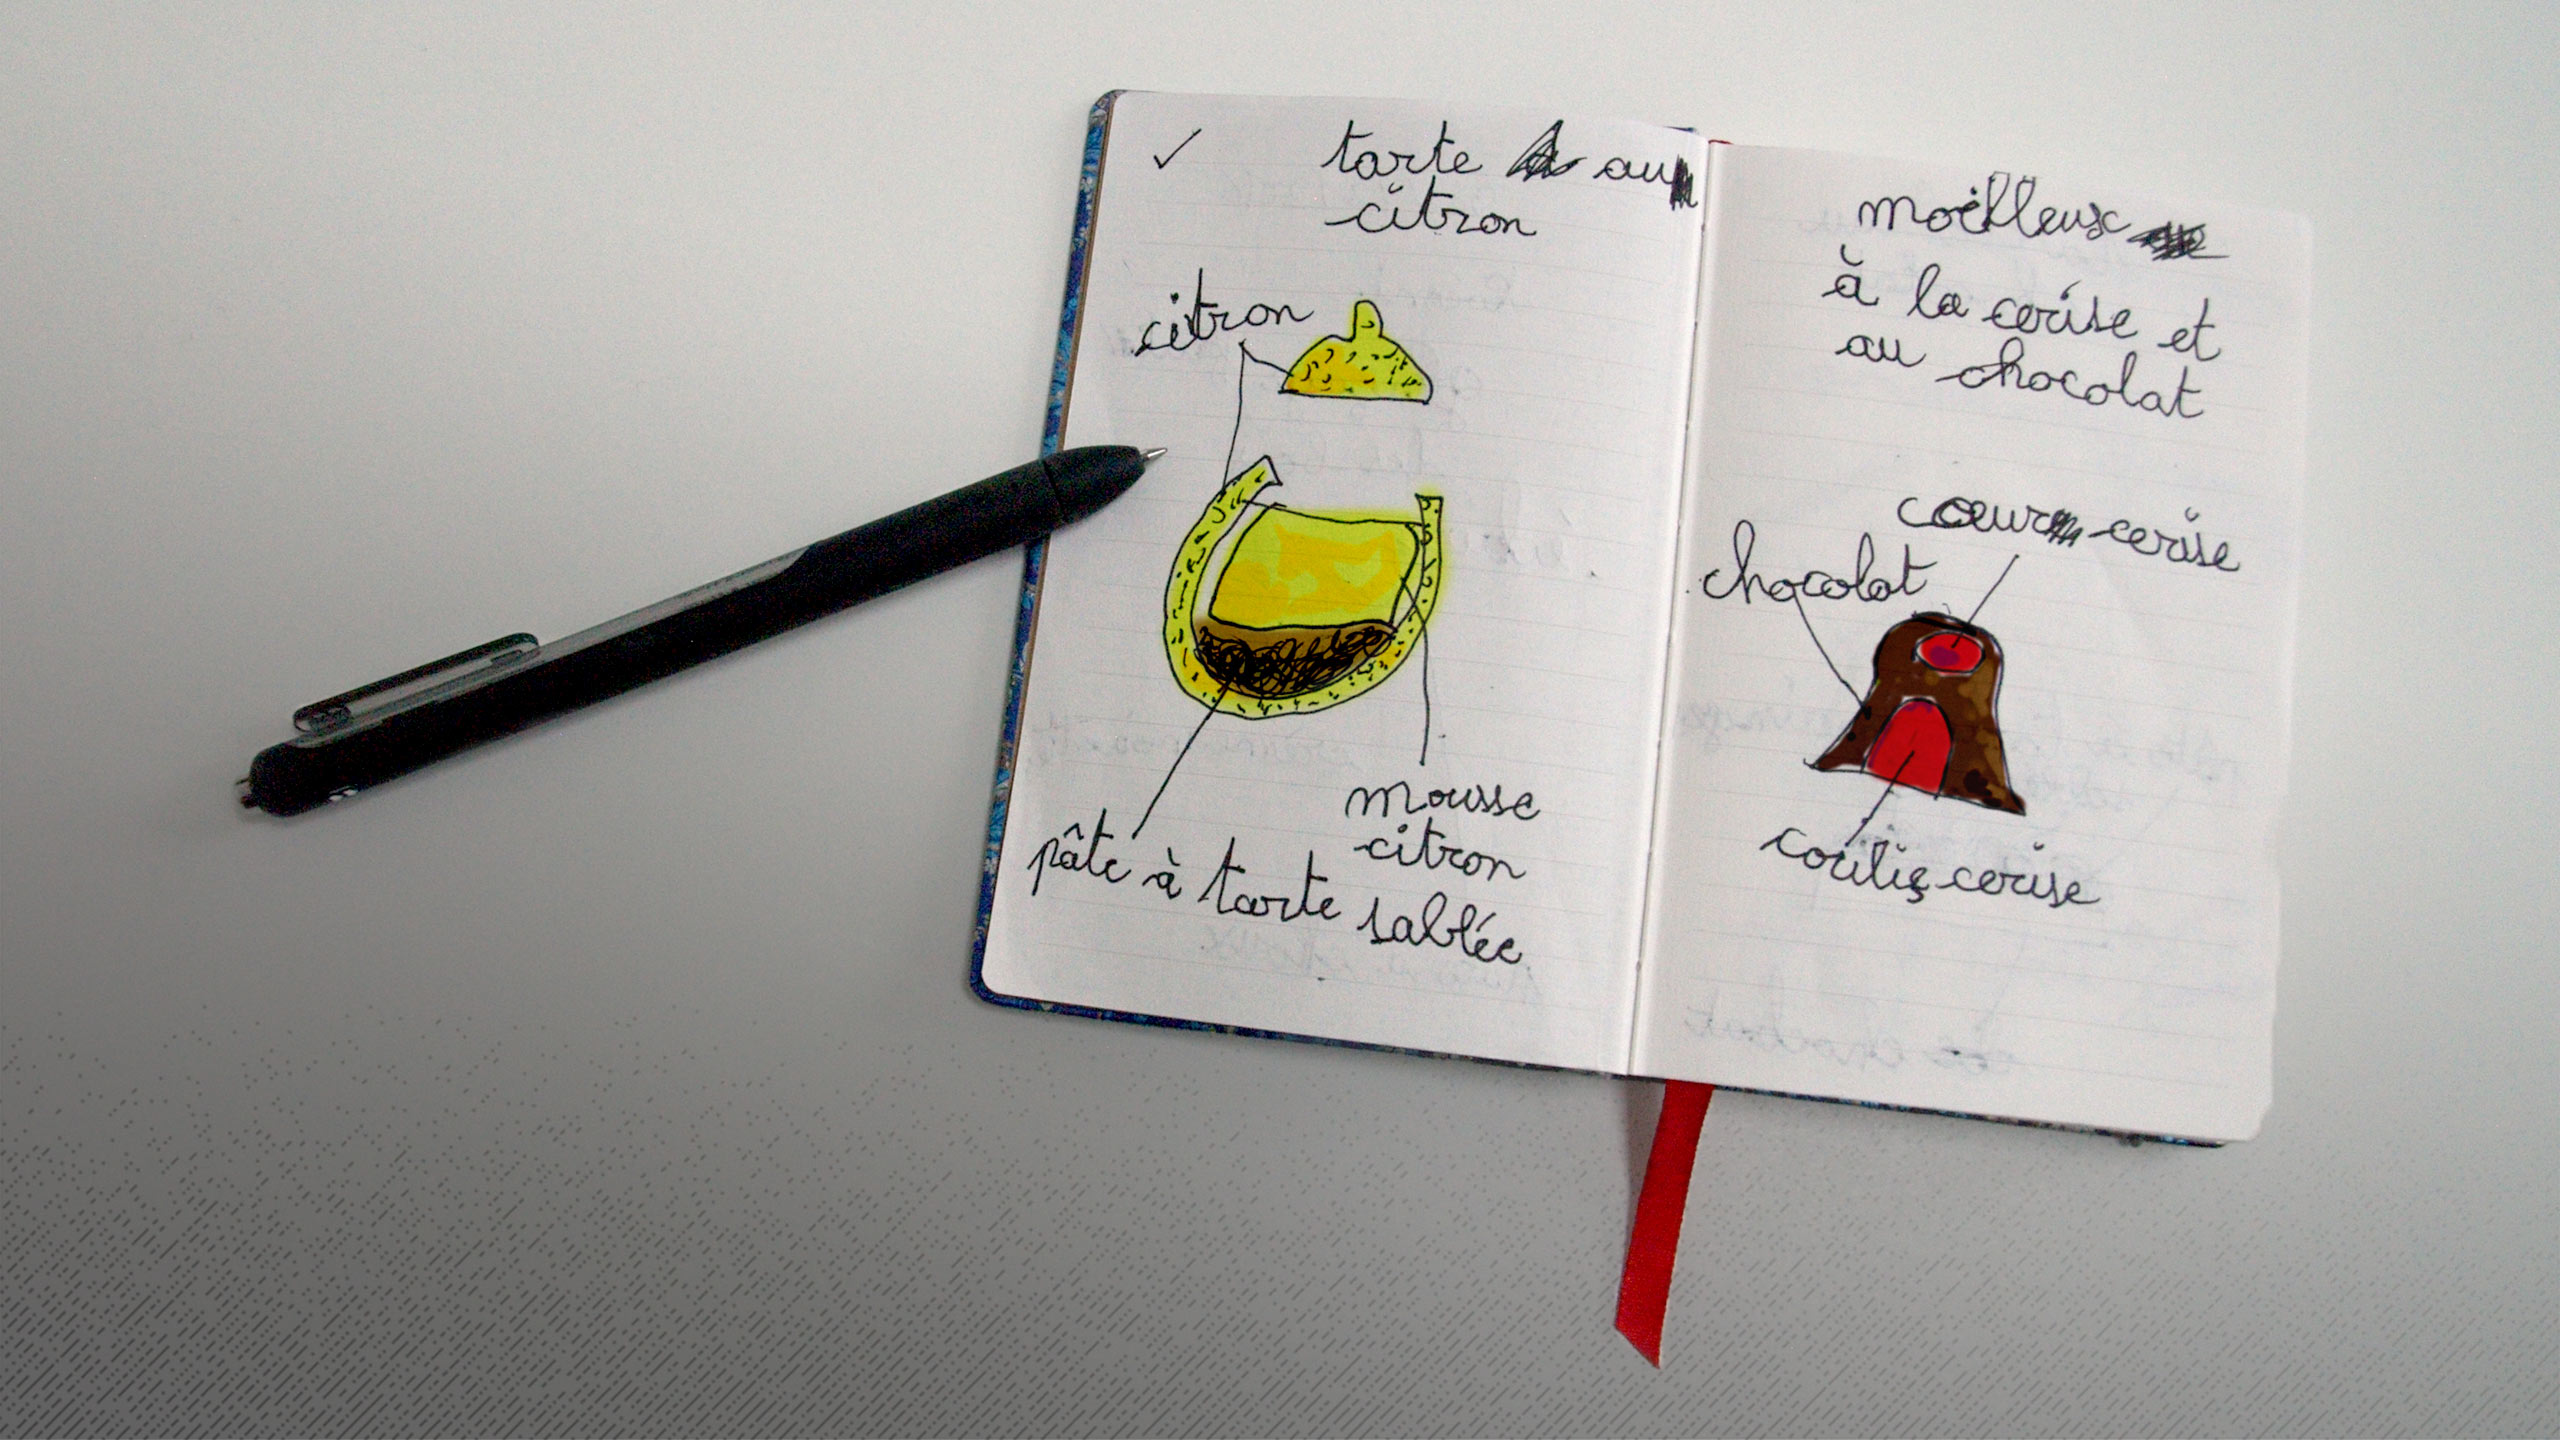 ✓ tarte au
citron
citron
mousse
citron
pâte à tarte sablée
moëlleux
à la cerise et
au chocolat
cœur cerise
chocolat
coulis cerise